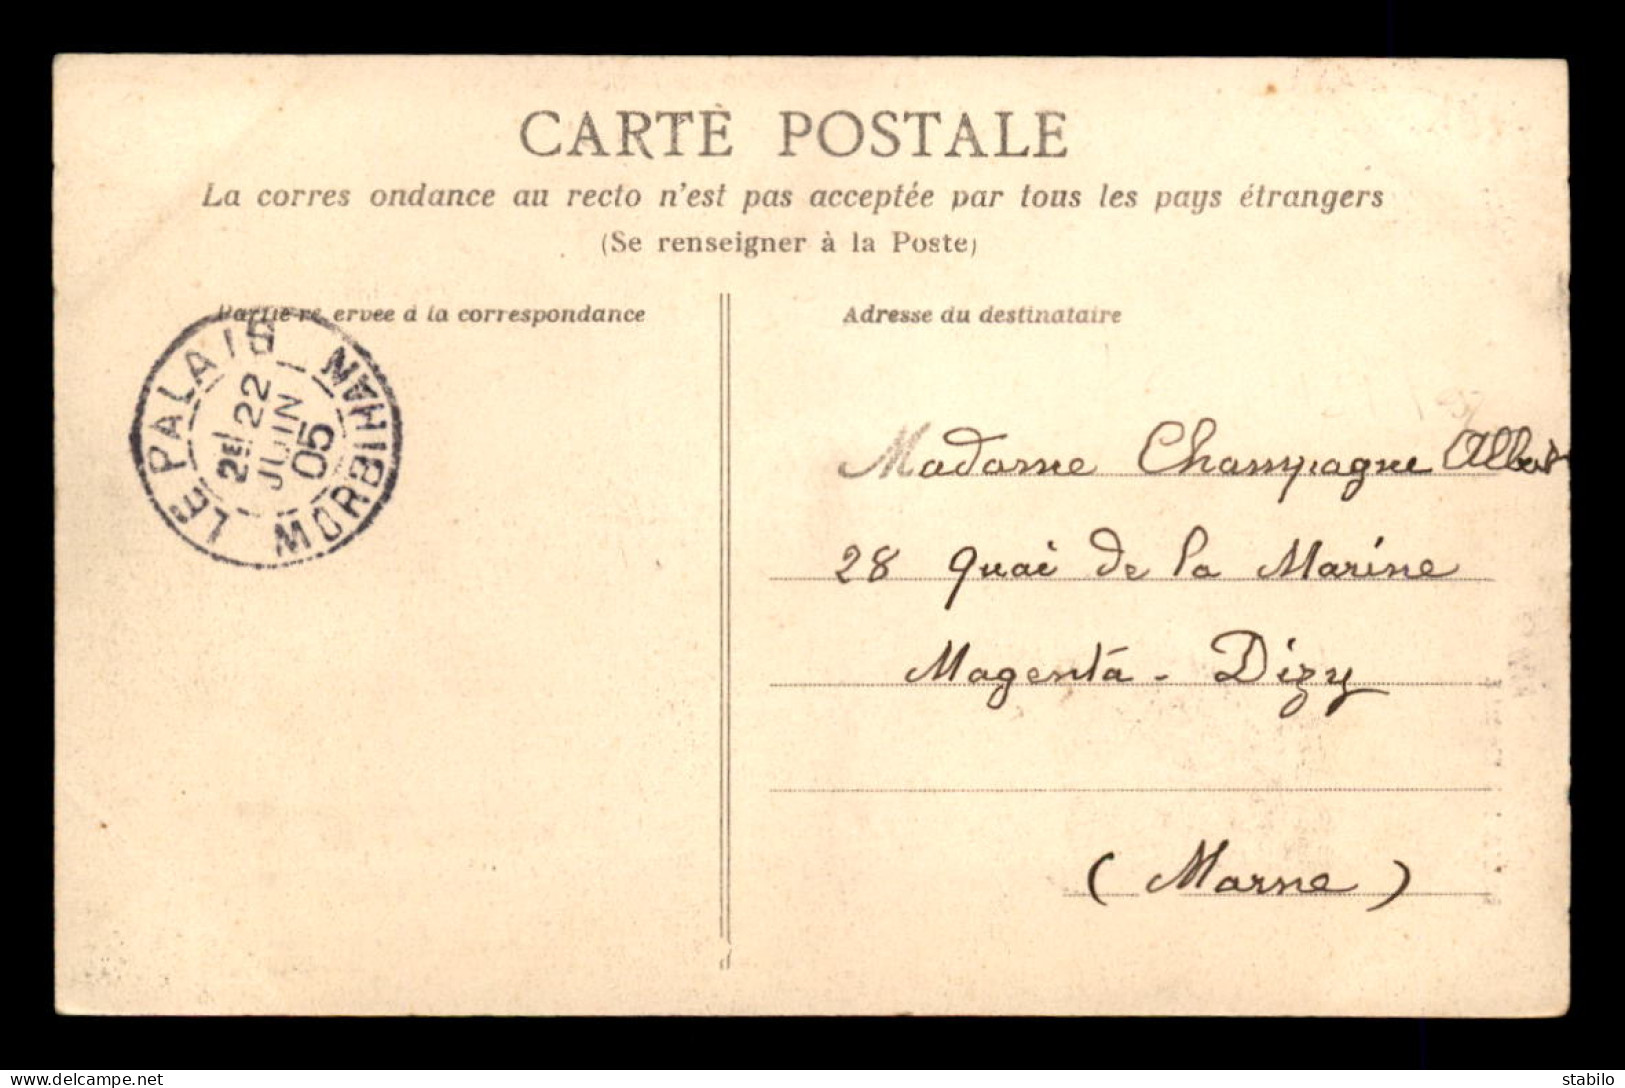 CARTE POSTALE
La corres ondance au recto n'est pas acceptée par tous les pays étrangers
(Se renseigner à la Poste)
Partie re ervée à la correspondance
Adresse du destinataire
LE PALAIS
MORBIHAN
2E 22
JUIN
05
Madame Champagne Albert
28 Quai de la Marine
Magenta - Dizy
(Marne)
delcampe.net
stabilo